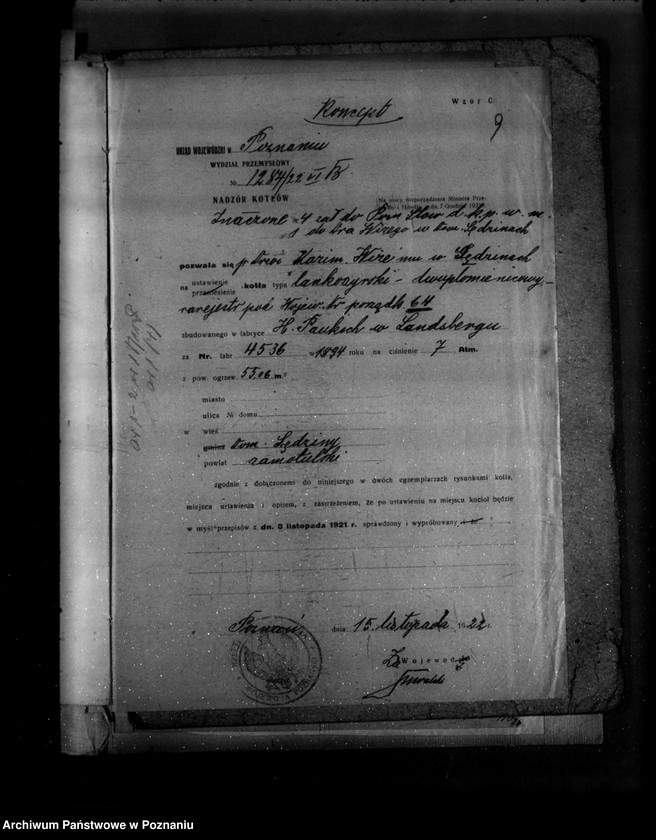 Koncept
Wzór C.
9
URZĄD WOJEWÓDZKI w Poznaniu
WYDZIAŁ PRZEMYSŁOWY
№ 1284/22 VI
NADZÓR KOTŁÓW
Na mocy rozporządzenia Ministra Prze-
Handlu z dn. 7 Grudnia 192
Znaczone 4 do
do w
pozwala się p. w Sędzinach
na ustawienie
przeniesienie kotła typu lankszyrski - dwupłomienicowy,
zarejestr pod Wojew. Nr porządk. 64
zbudowanego w fabryce H. Pauksch w Landsbergu
za Nr. fabr 4536 w 1894 roku na ciśnienie 7 Atm.
z pow. ogrzew 55.06 m²
miasto
ulica № domu
w wieś
gmina Dom. Sędziny
powiat szamotulski
zgodnie z dołączonemi do niniejszego w dwóch egzemplarzach rysunkami kotła,
miejsca ustawienia i opisem, z zastrzeżeniem, że po ustawieniu na miejscu kocioł będzie
w myśl przepisów z dn. 8 listopada 1921 r. sprawdzony i wypróbowany
Poznań dnia 15 listopada 1922 r.
Za Wojewodę
Archiwum Państwowe w Poznaniu